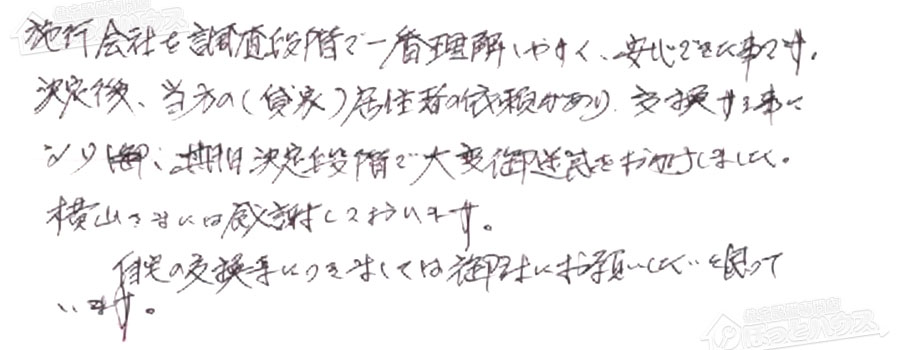 施行会社を調査段階で一番理解しやすく、安心できた事です。
決定後、当方の(貸家)居住者の依頼があり、交換する事に
なり、期日決定段階で大変御迷惑をお掛けしました。
横山さまには感謝しております。
自宅の交換等につきましては御社にお願いしたいと思って
います。